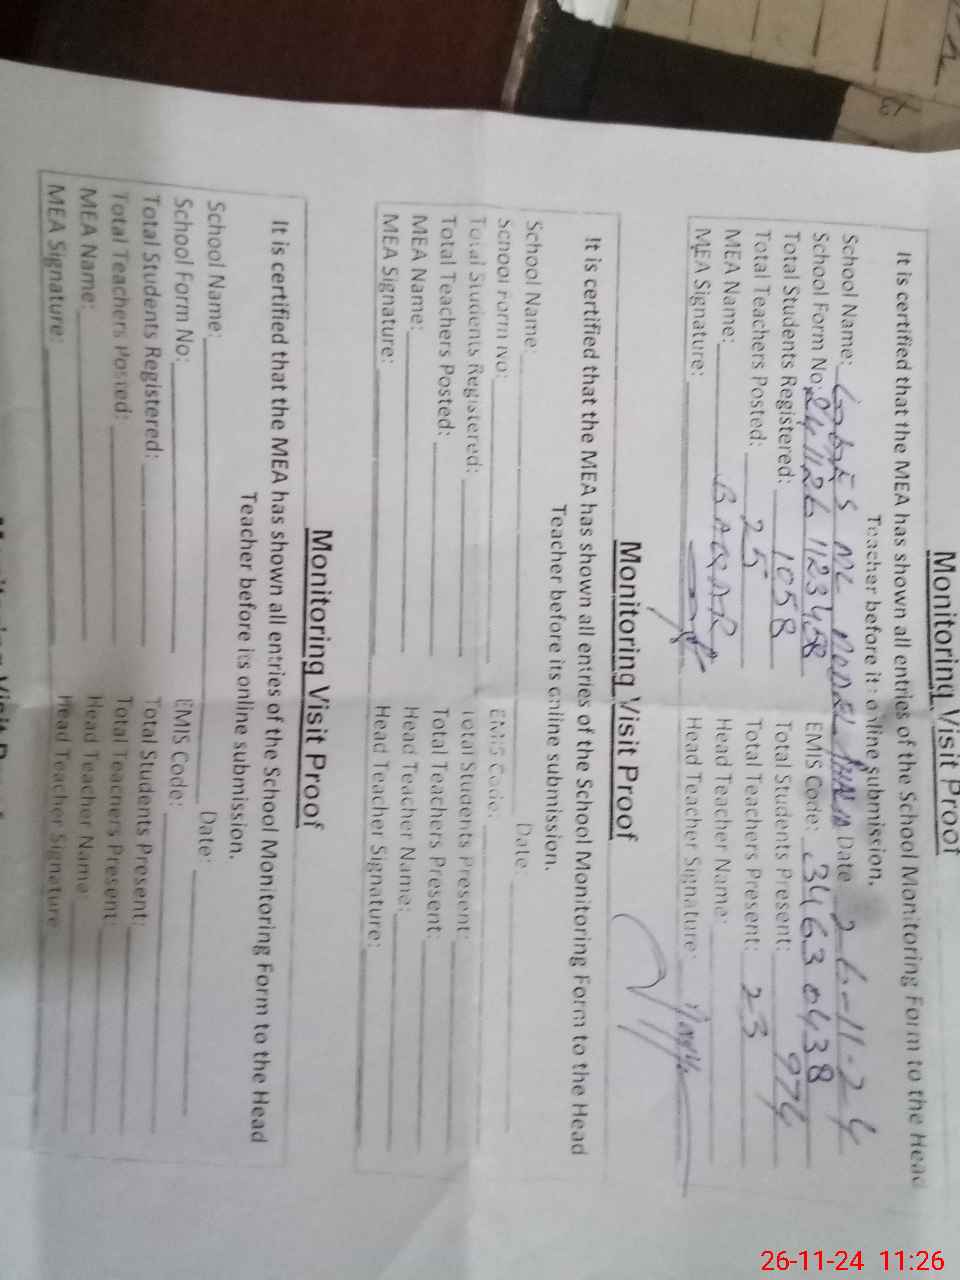 Monitoring Visit Proof
It is certified that the MEA has shown all entries of the School Monitoring Form to the Head
Teacher before its online submission.
School Name: Date 26-11-24
School Form No: EMIS Code: 34630438
Total Students Registered: 1058 Total Students Present: 974
Total Teachers Posted: 25 Total Teachers Present: 23
MEA Name: BAQAR Head Teacher Name:
MEA Signature: Head Teacher Signature:
Monitoring Visit Proof
It is certified that the MEA has shown all entries of the School Monitoring Form to the Head
Teacher before its online submission.
School Name: Date:
School Form No: EMIS Code:
Total Students Registered: Total Students Present:
Total Teachers Posted: Total Teachers Present:
MEA Name: Head Teacher Name:
MEA Signature: Head Teacher Signature:
Monitoring Visit Proof
It is certified that the MEA has shown all entries of the School Monitoring Form to the Head
Teacher before its online submission.
School Name: Date:
School Form No: EMIS Code:
Total Students Registered: Total Students Present:
Total Teachers Posted: Total Teachers Present:
MEA Name: Head Teacher Name
MEA Signature: Head Teacher Signature
26-11-24 11:26